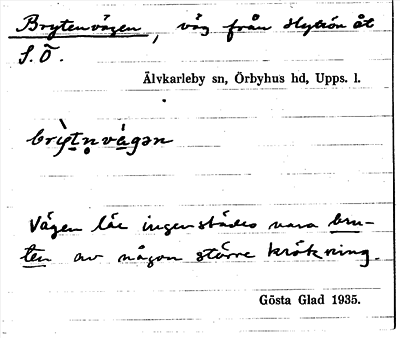 Brytenvägen, väg från Hyttön åt
S.Ö.
Älvkarleby sn, Örbyhus hd, Upps. l.
brỳtn̥vä́gən
Vägen lär ingenstädes vara bru-
ten av någon större krökning.
Gösta Glad 1935.